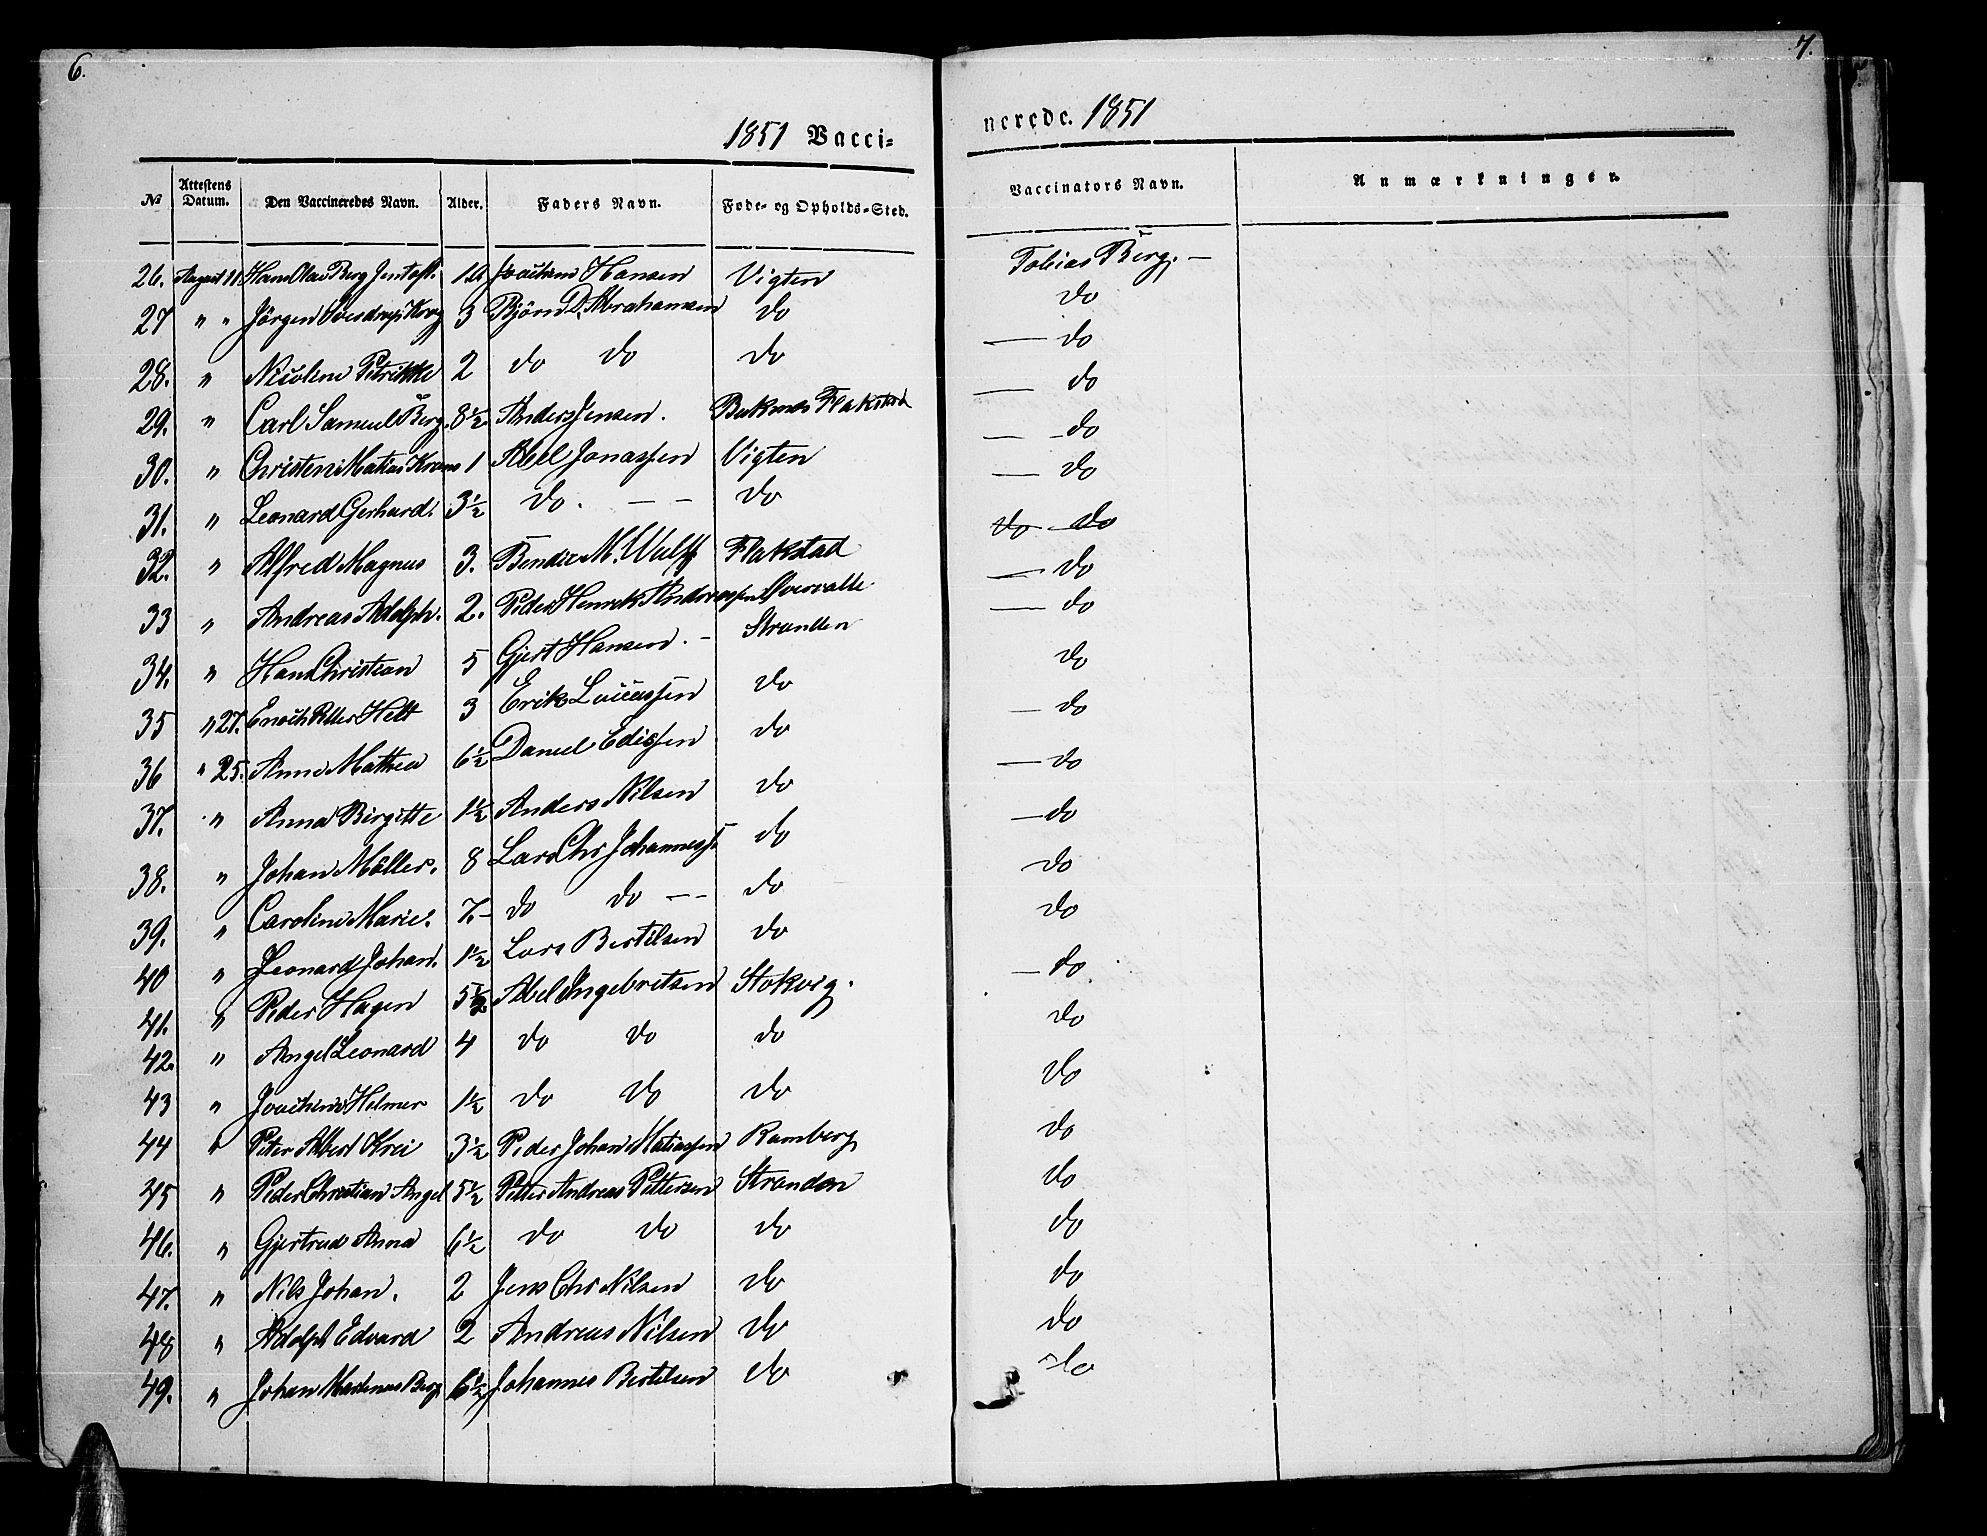 6.
7.
1851 Vacci=
nerede. 1851
No Attestens Datum. Den Vaccineredes Navn. Alder. Faders Navn. Føde- og Opholds=Sted. Vaccinators Navn. Anmærkninger.
26. August Hans Olai Berg Jentoft. Joachim Hansen Vigten Tobias Berg. —
27 " " Jörgen Krog 3 Björn D. Abrahamsen do do
28. " Nicoline Petrikke 2 do do do — do
29. " Carl Samuel Berg. 8½ Anders Jensen. Buknes Flakstad — do
30. " Christen Matias 1 Abel Jonassen Vigten — do
31. " Leonard Gerhard. 3½ do. — — do — do
32. " Alfred Magnus 3. Bendix M. Wulff Flakstad do do
33 " Andreas Adolph. 2. Peder Henrik Andreassen — do
34. " Hans Christian 5 Gjert Hansen. — Stranden — do
35 " 27. Enoch Petter Helt 3 Erik Lucassen do do
36 " 25. Anne Mathea 6½ Daniel Edissen do — do
37. " Anna Birgitte 1½ Anders Nilsen do — do
38. " Johan Möller. 8 Lars Chr Johanness. do — do
39. " Caroline Marie. 7. – do do — — do do
40 " Leonard Johan. 1½ Lars Bertilsen do do
41. " Peder Hagen 5½ Abel Ingebretsen Stokvig. — do
42. " Angel Leonard 4 do do do do
43 " Joachim Helmer 1½ do do do do
44 " Peter Albert Krei 3½ Peder Johan Matiassen Ramberg do
45 " Peder Christian Angel 5½ Petter Andreas Pettersen Stranden do
46. " Gjertrud Anna 6½ do do do do
47. " Nils Johan. 2 Jens Chr Nilsen do do
48 " Adolph Edvard 2 Andreas Nilsen do do
49. " Johan Martinus Berg 6½ Johannes Bertelsen do do